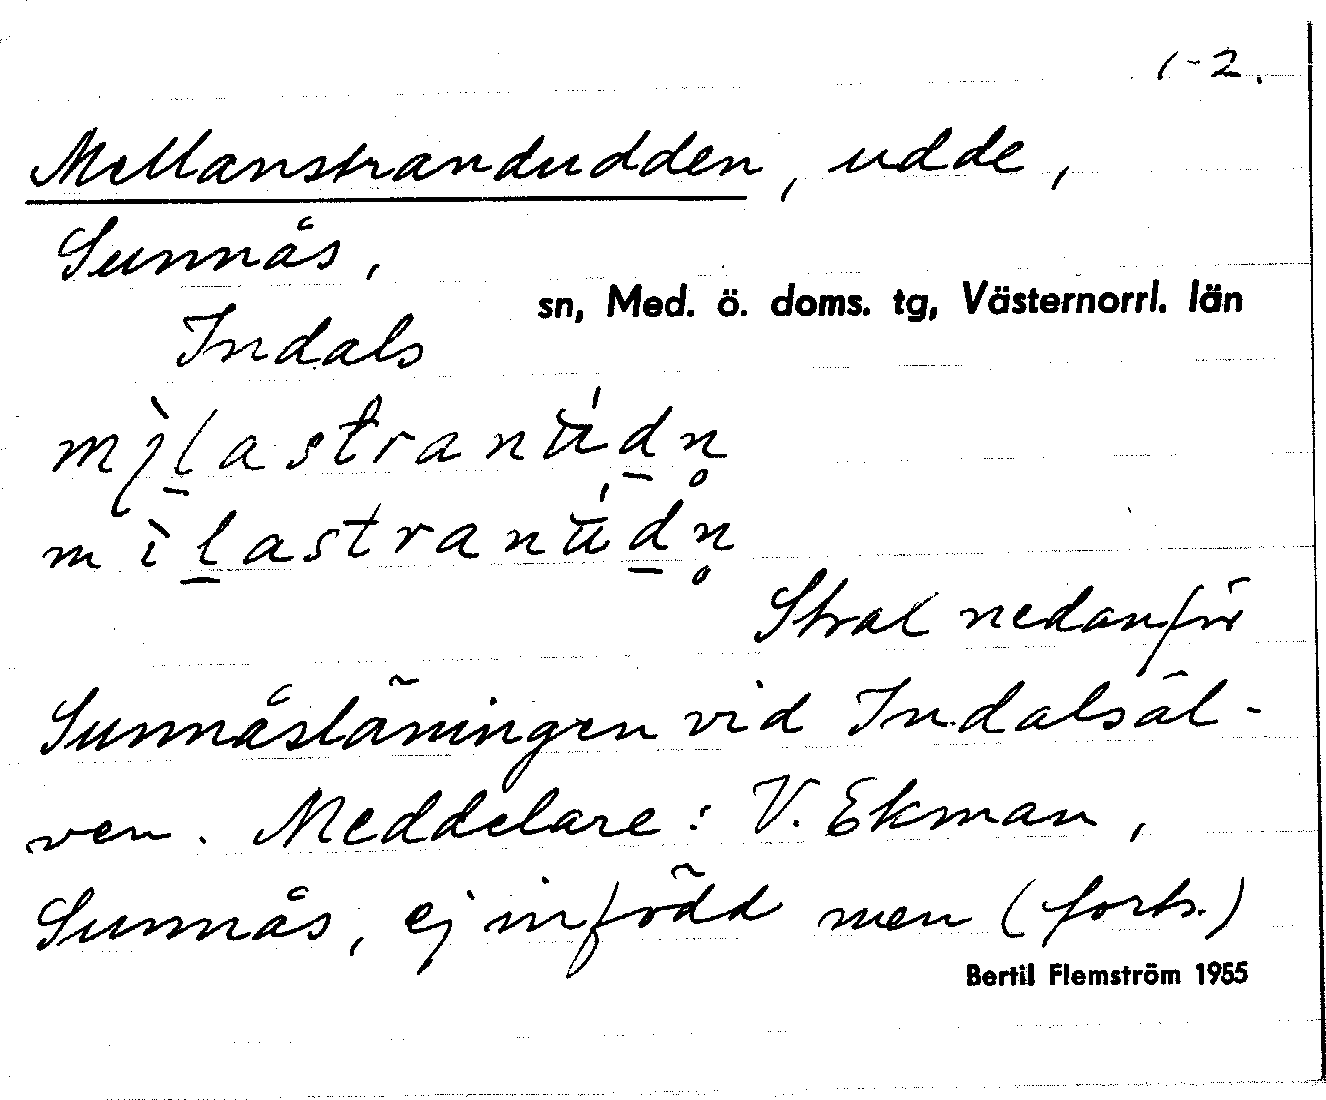 1-2.
Mellanstrandudden, udde,
Sunnås,
sn, Med. ö. doms. tg, Västernorrl. län
Indals
Stral nedanför
Sunnåsläningen vid Indalsäl-
ven. Meddelare: V. Ekman,
Sunnås, ej infödd men (forts.)
Bertil Flemström 1955